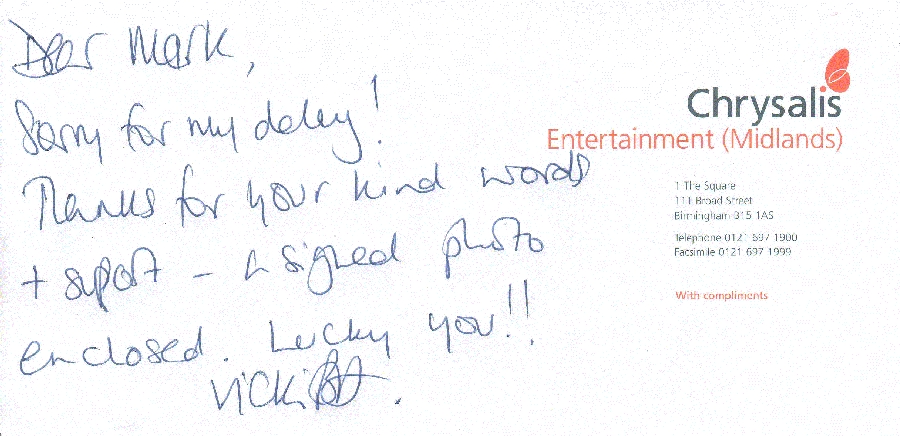 Dear Mark,
Sorry for my delay!
Thanks for your kind words
+ suport - a signed photo
enclosed. Lucky you!!
Vicki
Chrysalis
Entertainment (Midlands)
1 The Square
111 Broad Street
Birmingham B15 1AS
Telephone 0121 697 1900
Facsimile 0121 697 1999
With compliments